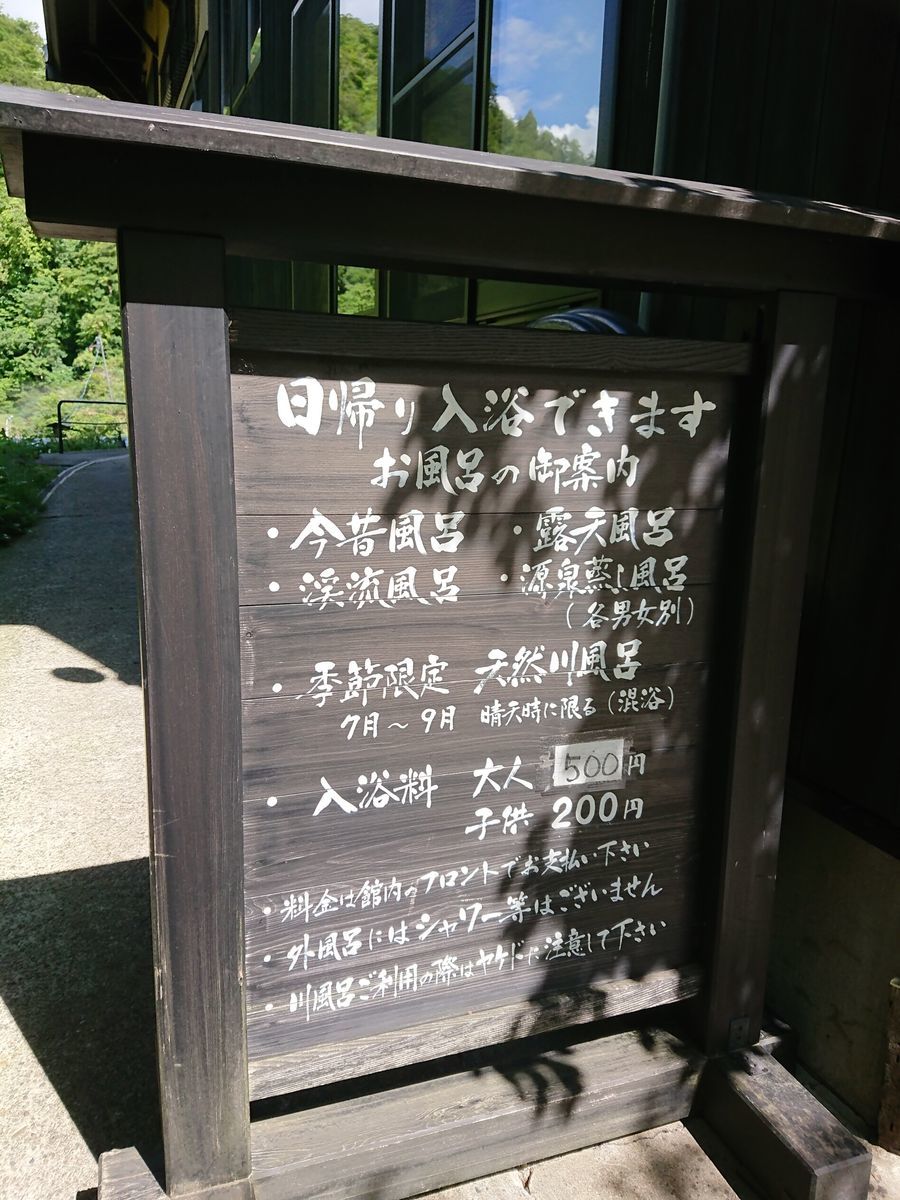 日帰り入浴できます
お風呂の御案内
・今昔風呂 ・露天風呂
・渓流風呂 ・源泉蒸し風呂
(各男女別)
・季節限定 天然川風呂
7月～9月 晴天時に限る(混浴)
・入浴料 大人 500円
子供 200円
・料金は館内のフロントでお支払い下さい
・外風呂にはシャワー等はございません
・川風呂ご利用の際はヤケドに注意して下さい